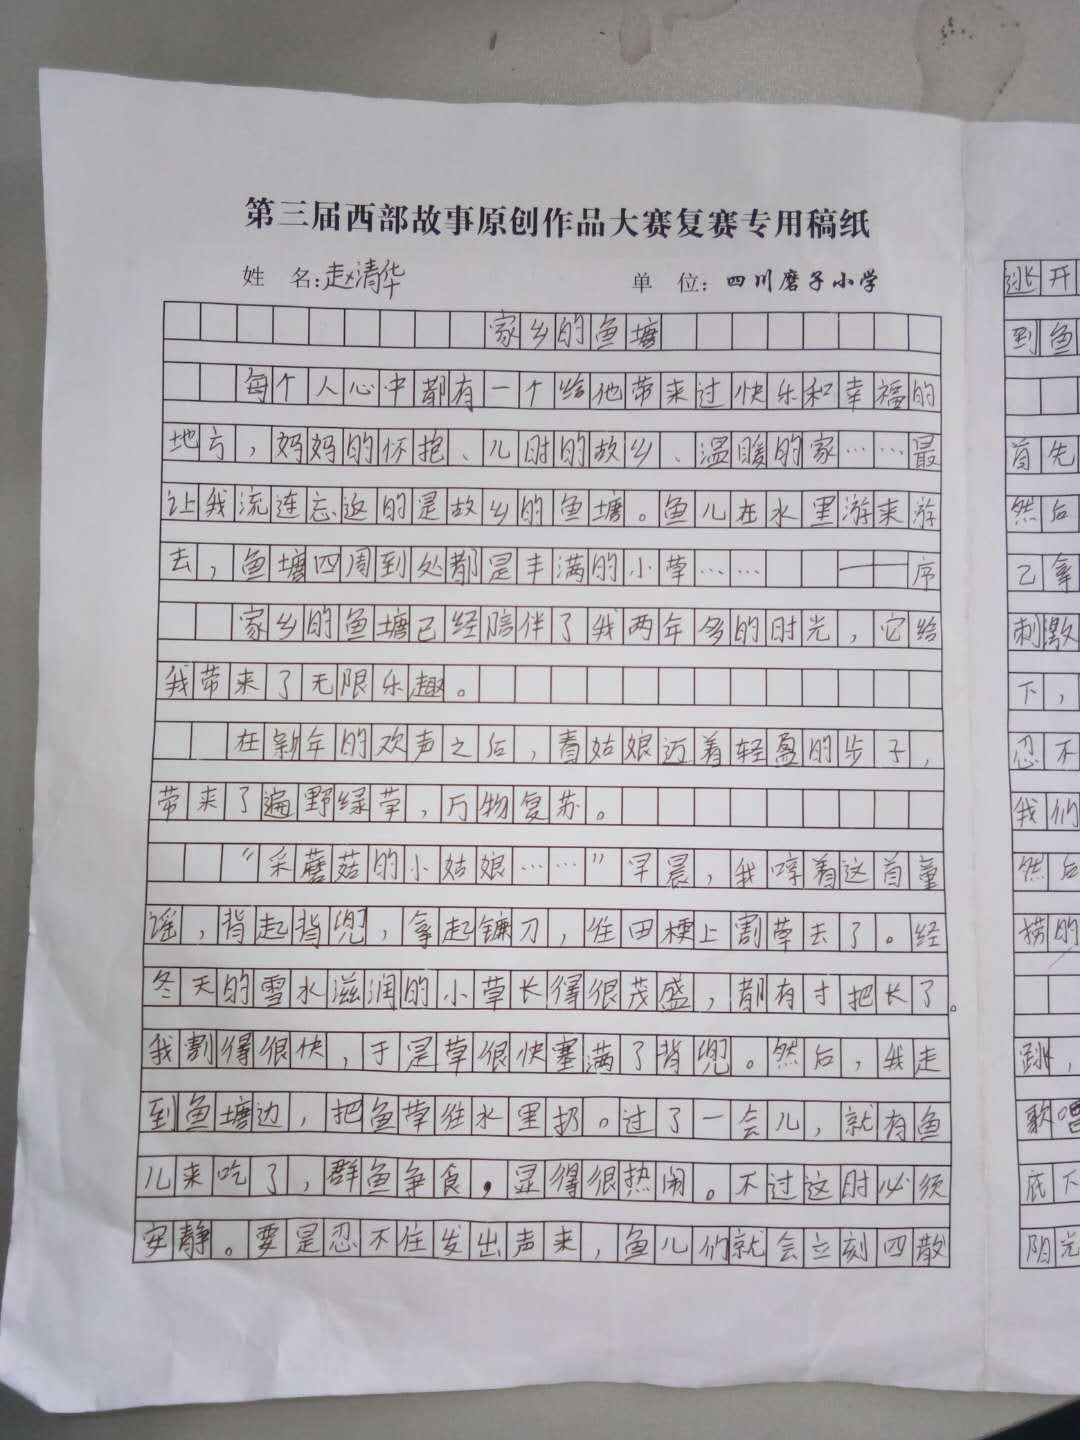 第三届西部故事原创作品大赛复赛专用稿纸
姓 名:赵清华 单 位:四川磨子小学
家乡的鱼塘
每个人心中都有一个给他带来过快乐和幸福的
地方,妈妈的怀抱、儿时的故乡、温暖的家……最
让我流连忘返的是故乡的鱼塘。鱼儿在水里游来游
去,鱼塘四周到处都是丰满的小草…… ——序
家乡的鱼塘已经陪伴了我两年多的时光,它给
我带来了无限乐趣。
在新年的欢声之后,春姑娘迈着轻盈的步子,
带来了遍野绿草,万物复苏。
“采蘑菇的小姑娘……”早晨,我哼着这首童
谣,背起背兜,拿起镰刀,往田梗上割草去了。经
冬天的雪水滋润的小草长得很茂盛,都有寸把长了。
我割得很快,于是草很快塞满了背兜。然后,我走
到鱼塘边,把鱼草往水里扔。过了一会儿,就有鱼
儿来吃了,群鱼争食,显得很热闹。不过这时必须
安静。要是忍不住发出声来,鱼儿们就会立刻四散
逃开
到鱼
首先
然后
己拿
刺激
下,
忍不
我们
然后
捞的
跳,
歌唱
底下
阳光